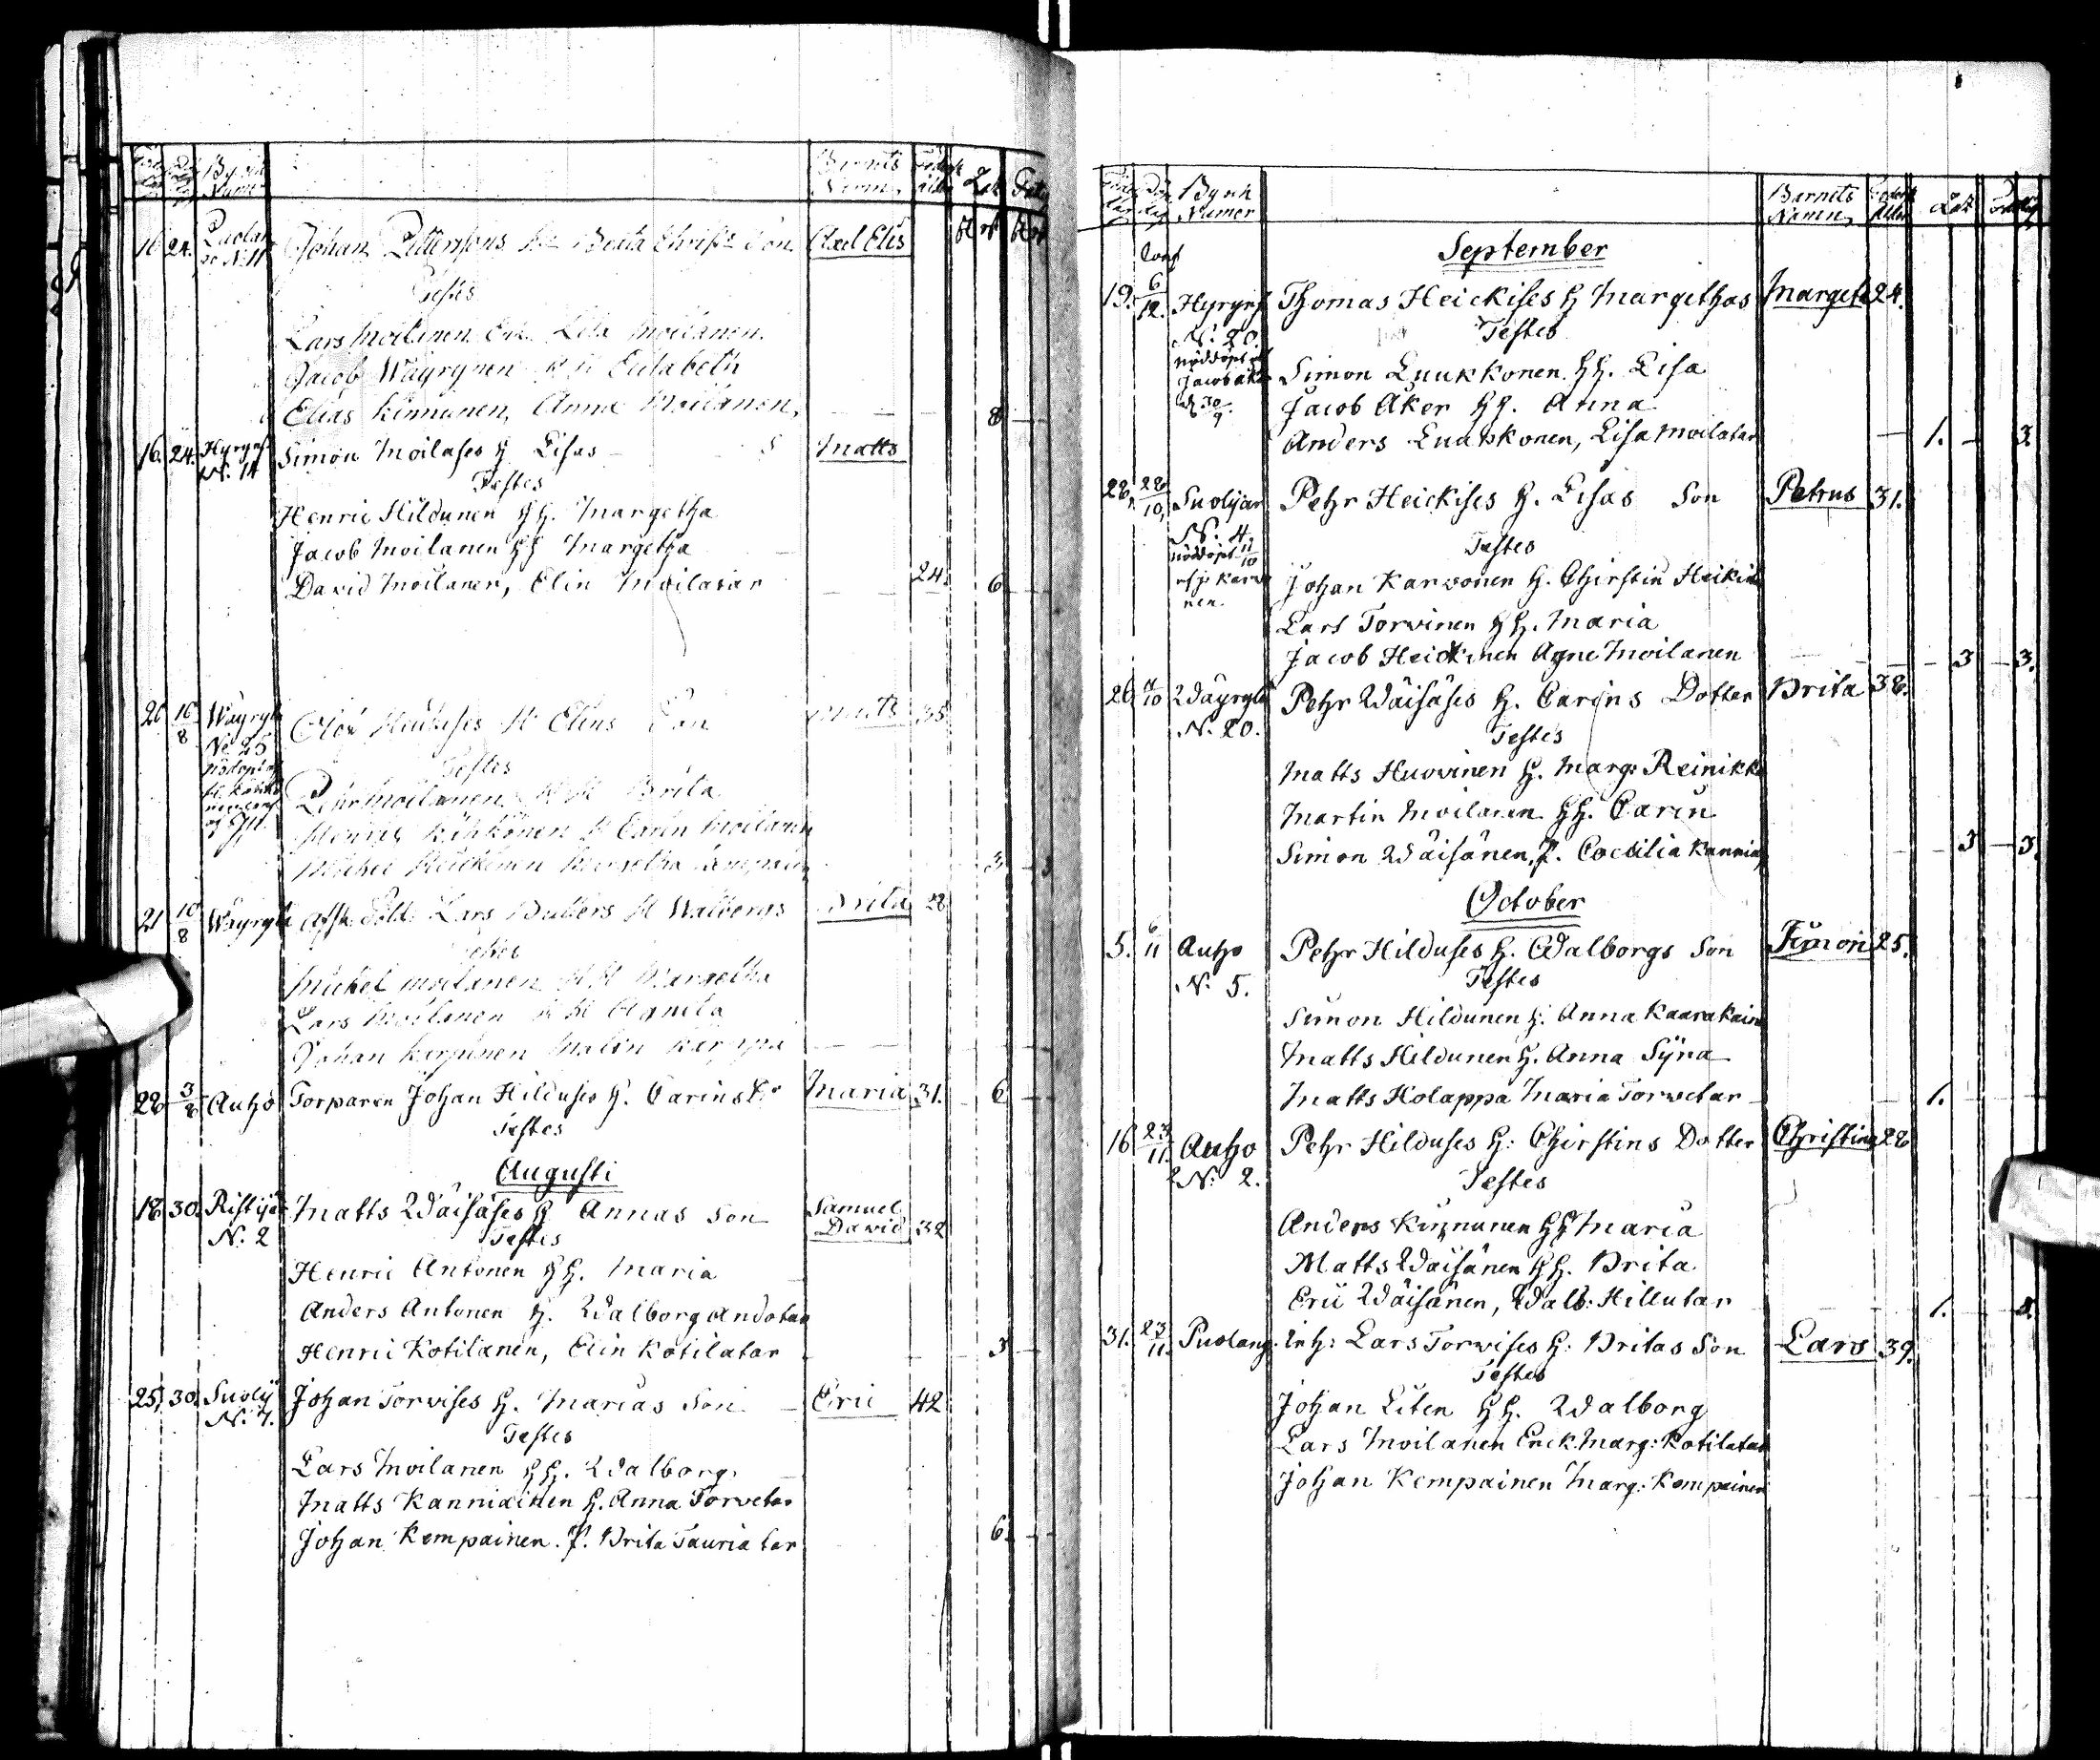 Byarnas
Namn
Barnets
Namn
16 24. No 11 Johan Pettersons Beata Christ: Son Axel Elis
Testes
Lars Moilanen Enk. Lisa Moilanen.
Jacob Wäyrynen H H Elisabeth
Elias Kinnunen, Anna Moilanen, 8
16. 24. Hyryns. N: 14 Simon Moilases H Lisas S Matts
Testes
Henric Hildunen H H. Margetha
Jacob Moilanen H H Margetha
David Moilanen, Elin Moilatar 24. 6
20 16/8 Wäyryl: No 25 Elins Son Matts 35
Testes
Pehr Moilanen H H Brita
Henric Kähkönen H Carin Moilanen
Michel Heickinen Margetha 3 3
21 10/8 Wäyryl: Afsk. Sold: Lars Bullers H Walborgs Brita 28
Testes
Michel Moilanen H H Margetha
Lars Moilanen H H Agneta
Johan Karppinen Malin
28 3/8 Autjo Torparen Johan Hilduses H. Carins D:r Maria 31. 6
Testes
Augusti
18 30. Ristijär N: 2 Matts Wäisäses H Annas Son Samuel David 32
Testes
Henric Antonen H H. Maria
Anders Antonen H. Walborg Andotar
Henric Kotilanen, Elin Kotilatar 3
25, 30. Suolij N: 7. Johan Torvises H. Marias Son Eric 42
Testes
Lars Moilanen H H. Walborg
Matts Kanniainen H. Anna Torvetar
Johan Kempainen. P. Brita Tauriatar 6.
Byarnas
Namen
Barnets
Namen
September
19. 6/12. Hyryns Thomas Heickises H Margethas Margeta 24.
N: 20. Testes
nöddöpt af
Jacob Åker Simon Luukkonen H H. Lisa
d. 30/9. Jacob Åker H H. Anna
Anders Luukkonen, Lisa Moilatar 1. 3
28, 28/10, Suolijär Pehr Heickises H. Lisas Son Petrus 31.
N: 4. Testes
nöddöpt 11/10
af J: Karvonen. Johan Karvonen H. Christin Heikin
Lars Torvinen H H. Maria
Jacob Heickinen Agne Moilanen 3 3.
26 /10 Wäyryl: Pehr Wäisäses H. Carins Dotter Brita 38.
N: 20. Testes
Matts Huovinen H. Marg: Reinikka
Martin Moilanen H H. Carin
Simon Wäisänen, P. Coecilia Kanniai 3 3.
October
5. 6/11 Autjo Pehr Hilduses H. Walborgs Son Simon 25.
N: 5. Testes
Simon Hildunen H: Anna Kaarakain
Matts Hildunen H. Anna Syna
Matts Kolappa Maria Torvetar 1.
16 23/11. Autjo Pehr Hilduses H: Christins Dotter Christina 28
N: 2. Testes
Anders Kinnunen H H Maria
Matts Wäisänen H H. Brita
Eric Wäisänen, Walb: Hillutar 1.
31. 23/11. Puolang. Inh: Lars Torvises H: Britas Son Lars 39.
Testes
Johan Liten H H. Walborg
Lars Moilanen Enck. Marg: Kotilatar
Johan Kempainen Marg: Kempainen